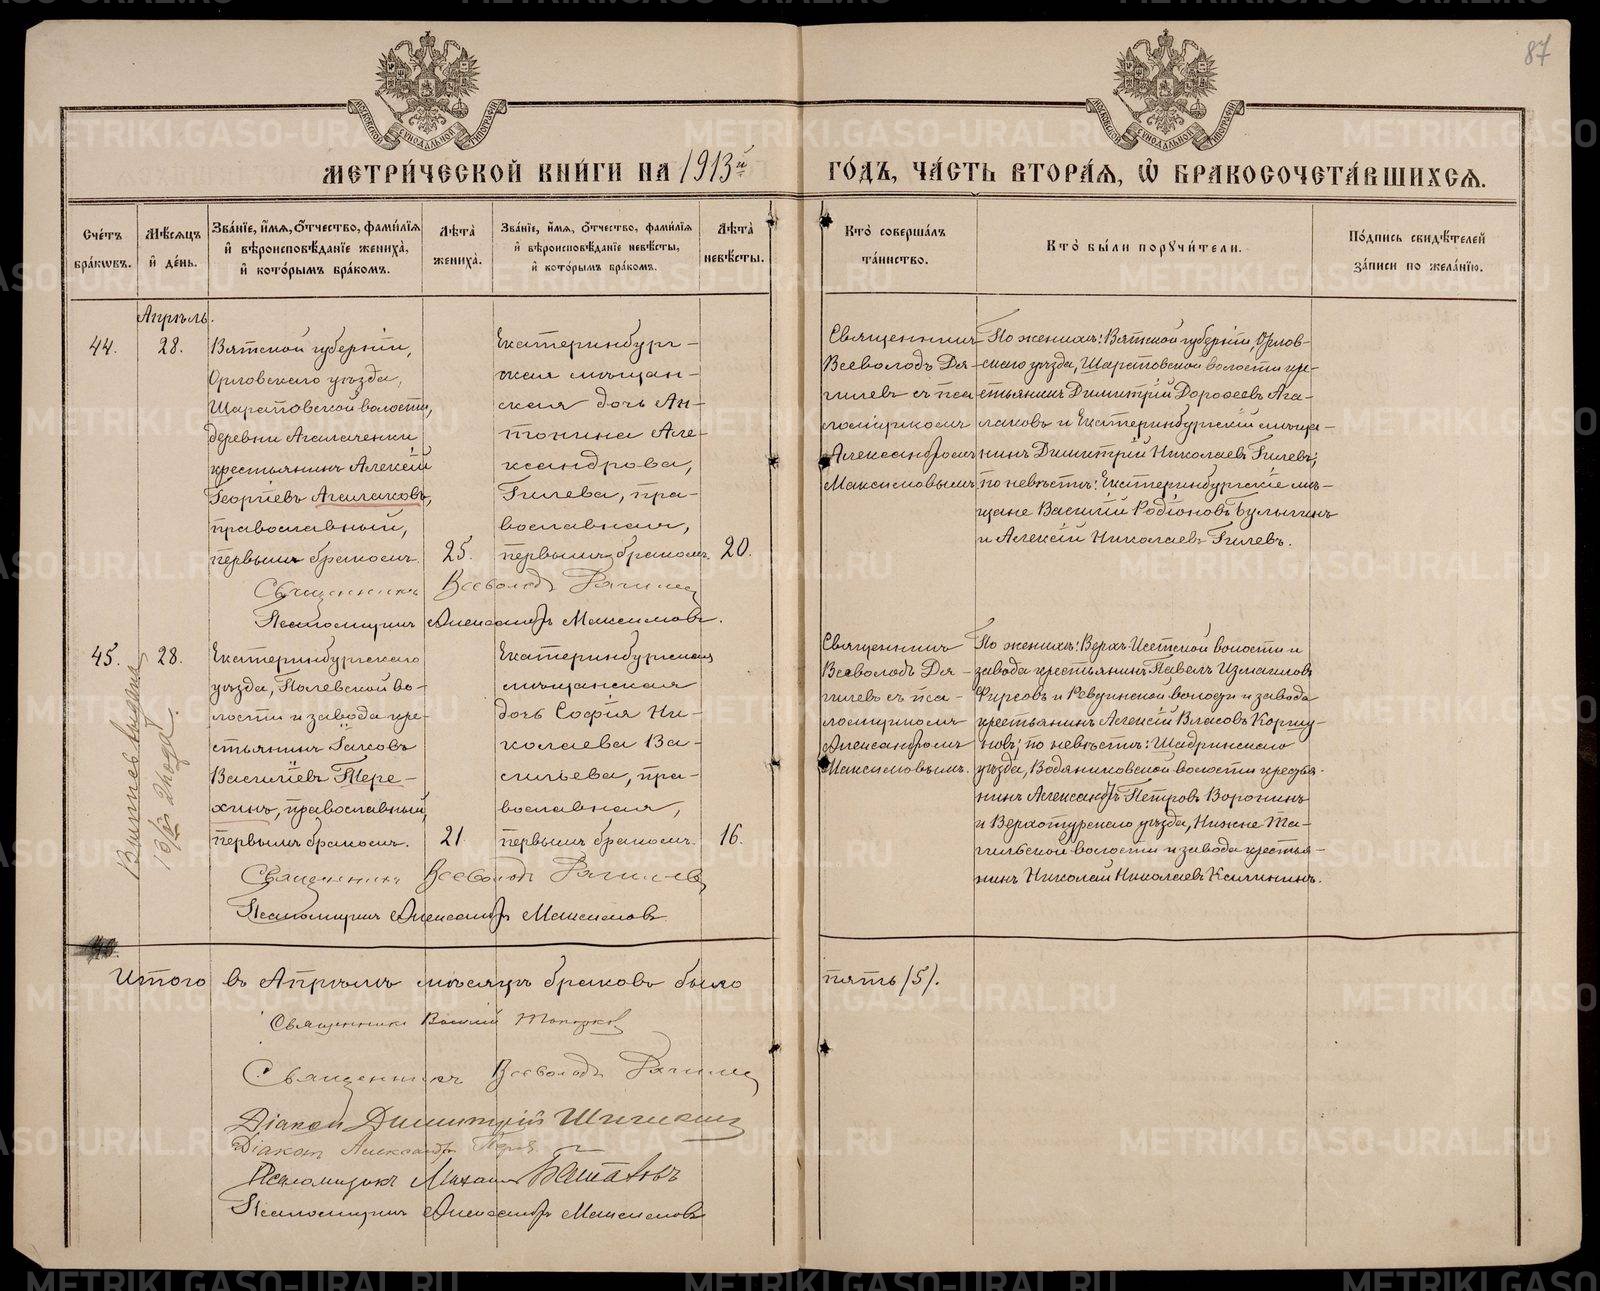 87
МЕТРИ́ЧЕСКОЙ КНИ́ГИ НА 1913й ГО́ДЪ, ЧА́СТЬ ВТОРА́Я, Ѡ БРАКОСОЧЕТА́ВШИХСЯ.
Сче́тъ бра́кѡвъ.
Мѣ́сяцъ и де́нь.
Зва́нїе, и́мя, ѻ́тчество, фами́лїя и вѣроисповѣ́данїе жениха̀, и кото́рымъ бра́комъ.
Лѣта̀ жениха̀.
Зва́нїе, и́мя, ѻ́тчество, фами́лїя и вѣроисповѣ́данїе невѣ́сты, и кото́рымъ бра́комъ.
Лѣта̀ невѣ́сты.
Кто̀ соверша́лъ та́инство.
Кто̀ бы́ли порꙋчи́тели.
По́дпись свидѣ́телей за́писи по жела́нїю.
Апрѣль.
44.
28.
Вятской губерніи,
Орловскаго уѣзда,
Шараповской волости,
деревни Агалаченки
крестьянинъ Алексій
Георгіевъ Агалаковъ,
православный,
первымъ бракомъ.
25.
Екатеринбург-
ская мѣщан-
ская дочь Ан-
тонина Але-
ксандрова,
Гилева, пра-
вославная,
первымъ бракомъ.
20.
Священникъ
Всеволодъ Дя-
гилевъ съ пса
ломщикомъ
Александромъ
Максимовымъ.
По женихѣ: Вятской губерніи, Орлов-
скаго уѣзда, Шараповской волости кре-
стьянинъ Димитрій Дороѳеевъ Ага-
лаковъ и Екатеринбургскій мѣща-
нинъ Димитрій Николаевъ Гилевъ;
по невѣстѣ: Екатеринбургскіе мѣ-
щане Василій Родіоновъ Булыгинъ
и Алексій Николаевъ Гилевъ.
Священникъ Всеволодъ Дягилевъ
Псаломщикъ Александръ Максимовъ.
45.
28.
Екатеринбургскаго
уѣзда, Полевской во-
лости и завода кре-
стьянинъ Іаковъ
Василіевъ Тере-
хинъ, православный,
первымъ бракомъ.
21.
Екатеринбургская
мѣщанская
дочь Софія Ни-
колаева Ва-
сильева, пра-
вославная,
первымъ бракомъ.
16.
Священникъ
Всеволодъ Дя-
гилевъ съ пса-
ломщикомъ
Александромъ
Максимовымъ.
По женихѣ: Верхъ-Исетской волости и
завода крестьянинъ Павелъ Измаиловъ
Фирсовъ и Ревдинской волости и завода
крестьянинъ Алексій Власовъ Коршу-
новъ; по невѣстѣ: Шадринскаго
уѣзда, Водениковской волости крестья-
нинъ Александръ Петровъ Воронинъ
и Верхотурскаго уѣзда, Нижне-Та-
гильской волости и завода крестья-
нинъ Николай Николаевъ Калининъ.
Выпись выдана
Священникъ Всеволодъ Дягилевъ
Псаломщикъ Александръ Максимовъ
Итого въ Апрѣлѣ мѣсяцѣ браковъ было пять (5).
Священникъ Василій
Священникъ Всеволодъ Дягилевъ
Діаконъ Димитрій Шишкинъ
Діаконъ Александръ
Псаломщикъ Михаилъ
Псаломщикъ Александръ Максимовъ
METRIKI.GASO-URAL.RU